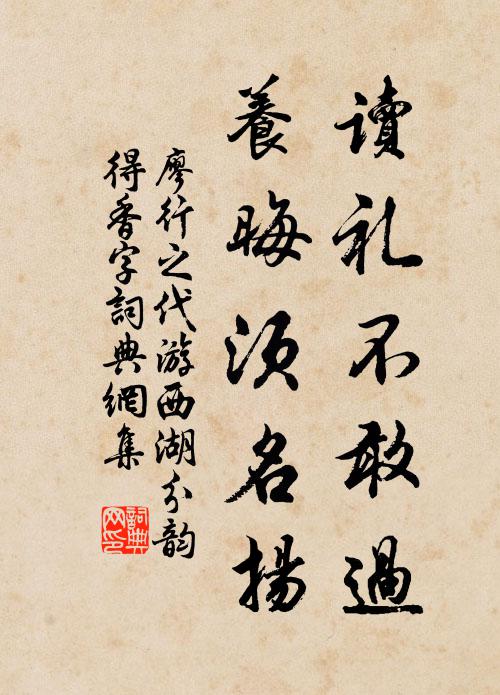 讀礼不敢過
養晦須名揚
廖行之代游西湖分韵
得香字詞典網集
詞典网印